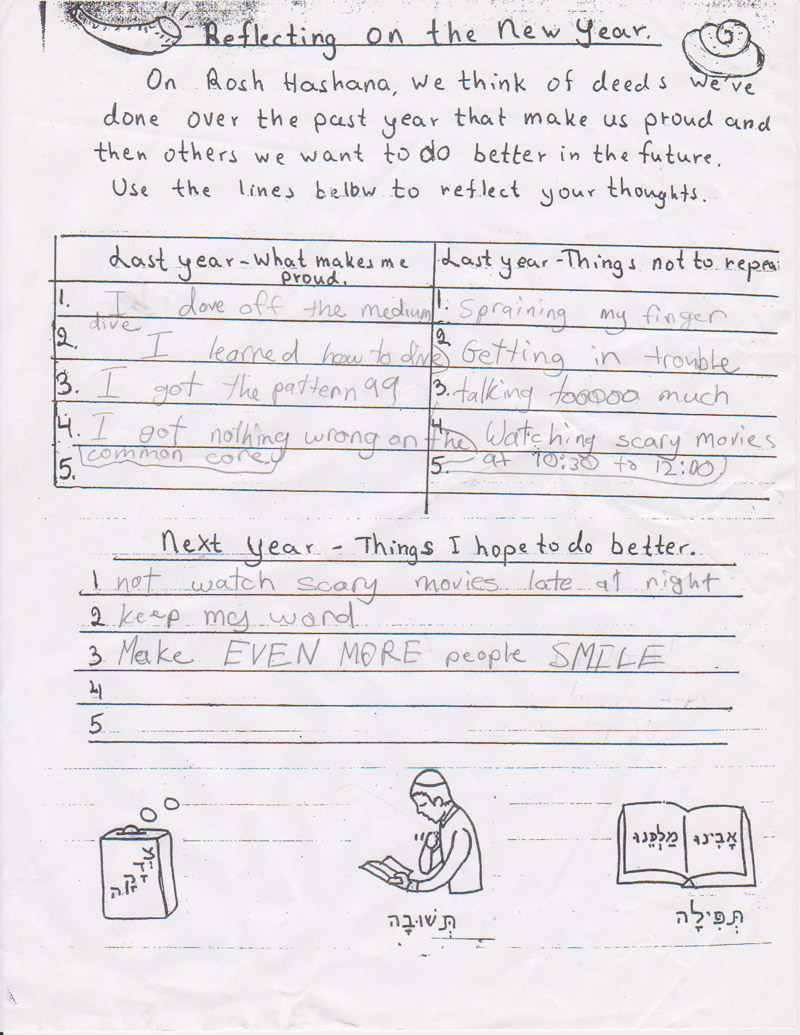 Reflecting on the New Year.
On Rosh Hashana, we think of deeds we've
done over the past year that make us proud and
then others we want to do better in the future.
Use the lines below to reflect your thoughts.
Last year - What makes me
proud.
1. I dove off the medium
dive
2. I learned how to dive
3. I got the pattern 99
4. I got nothing wrong on the
common core
5.
Last year - Things not to repeat
1. Spraining my finger
2. Getting in trouble
3. talking tooooo much
4. Watching scary movies
5. at 10:30 to 12:00
Next Year - Things I hope to do better.
1 not watch scary movies late at night
2 keep my word
3 Make EVEN MORE people SMILE
4
5
צְדָקָה
תְּשׁוּבָה
אָבִינוּ מַלְכֵּנוּ
תְּפִילָה